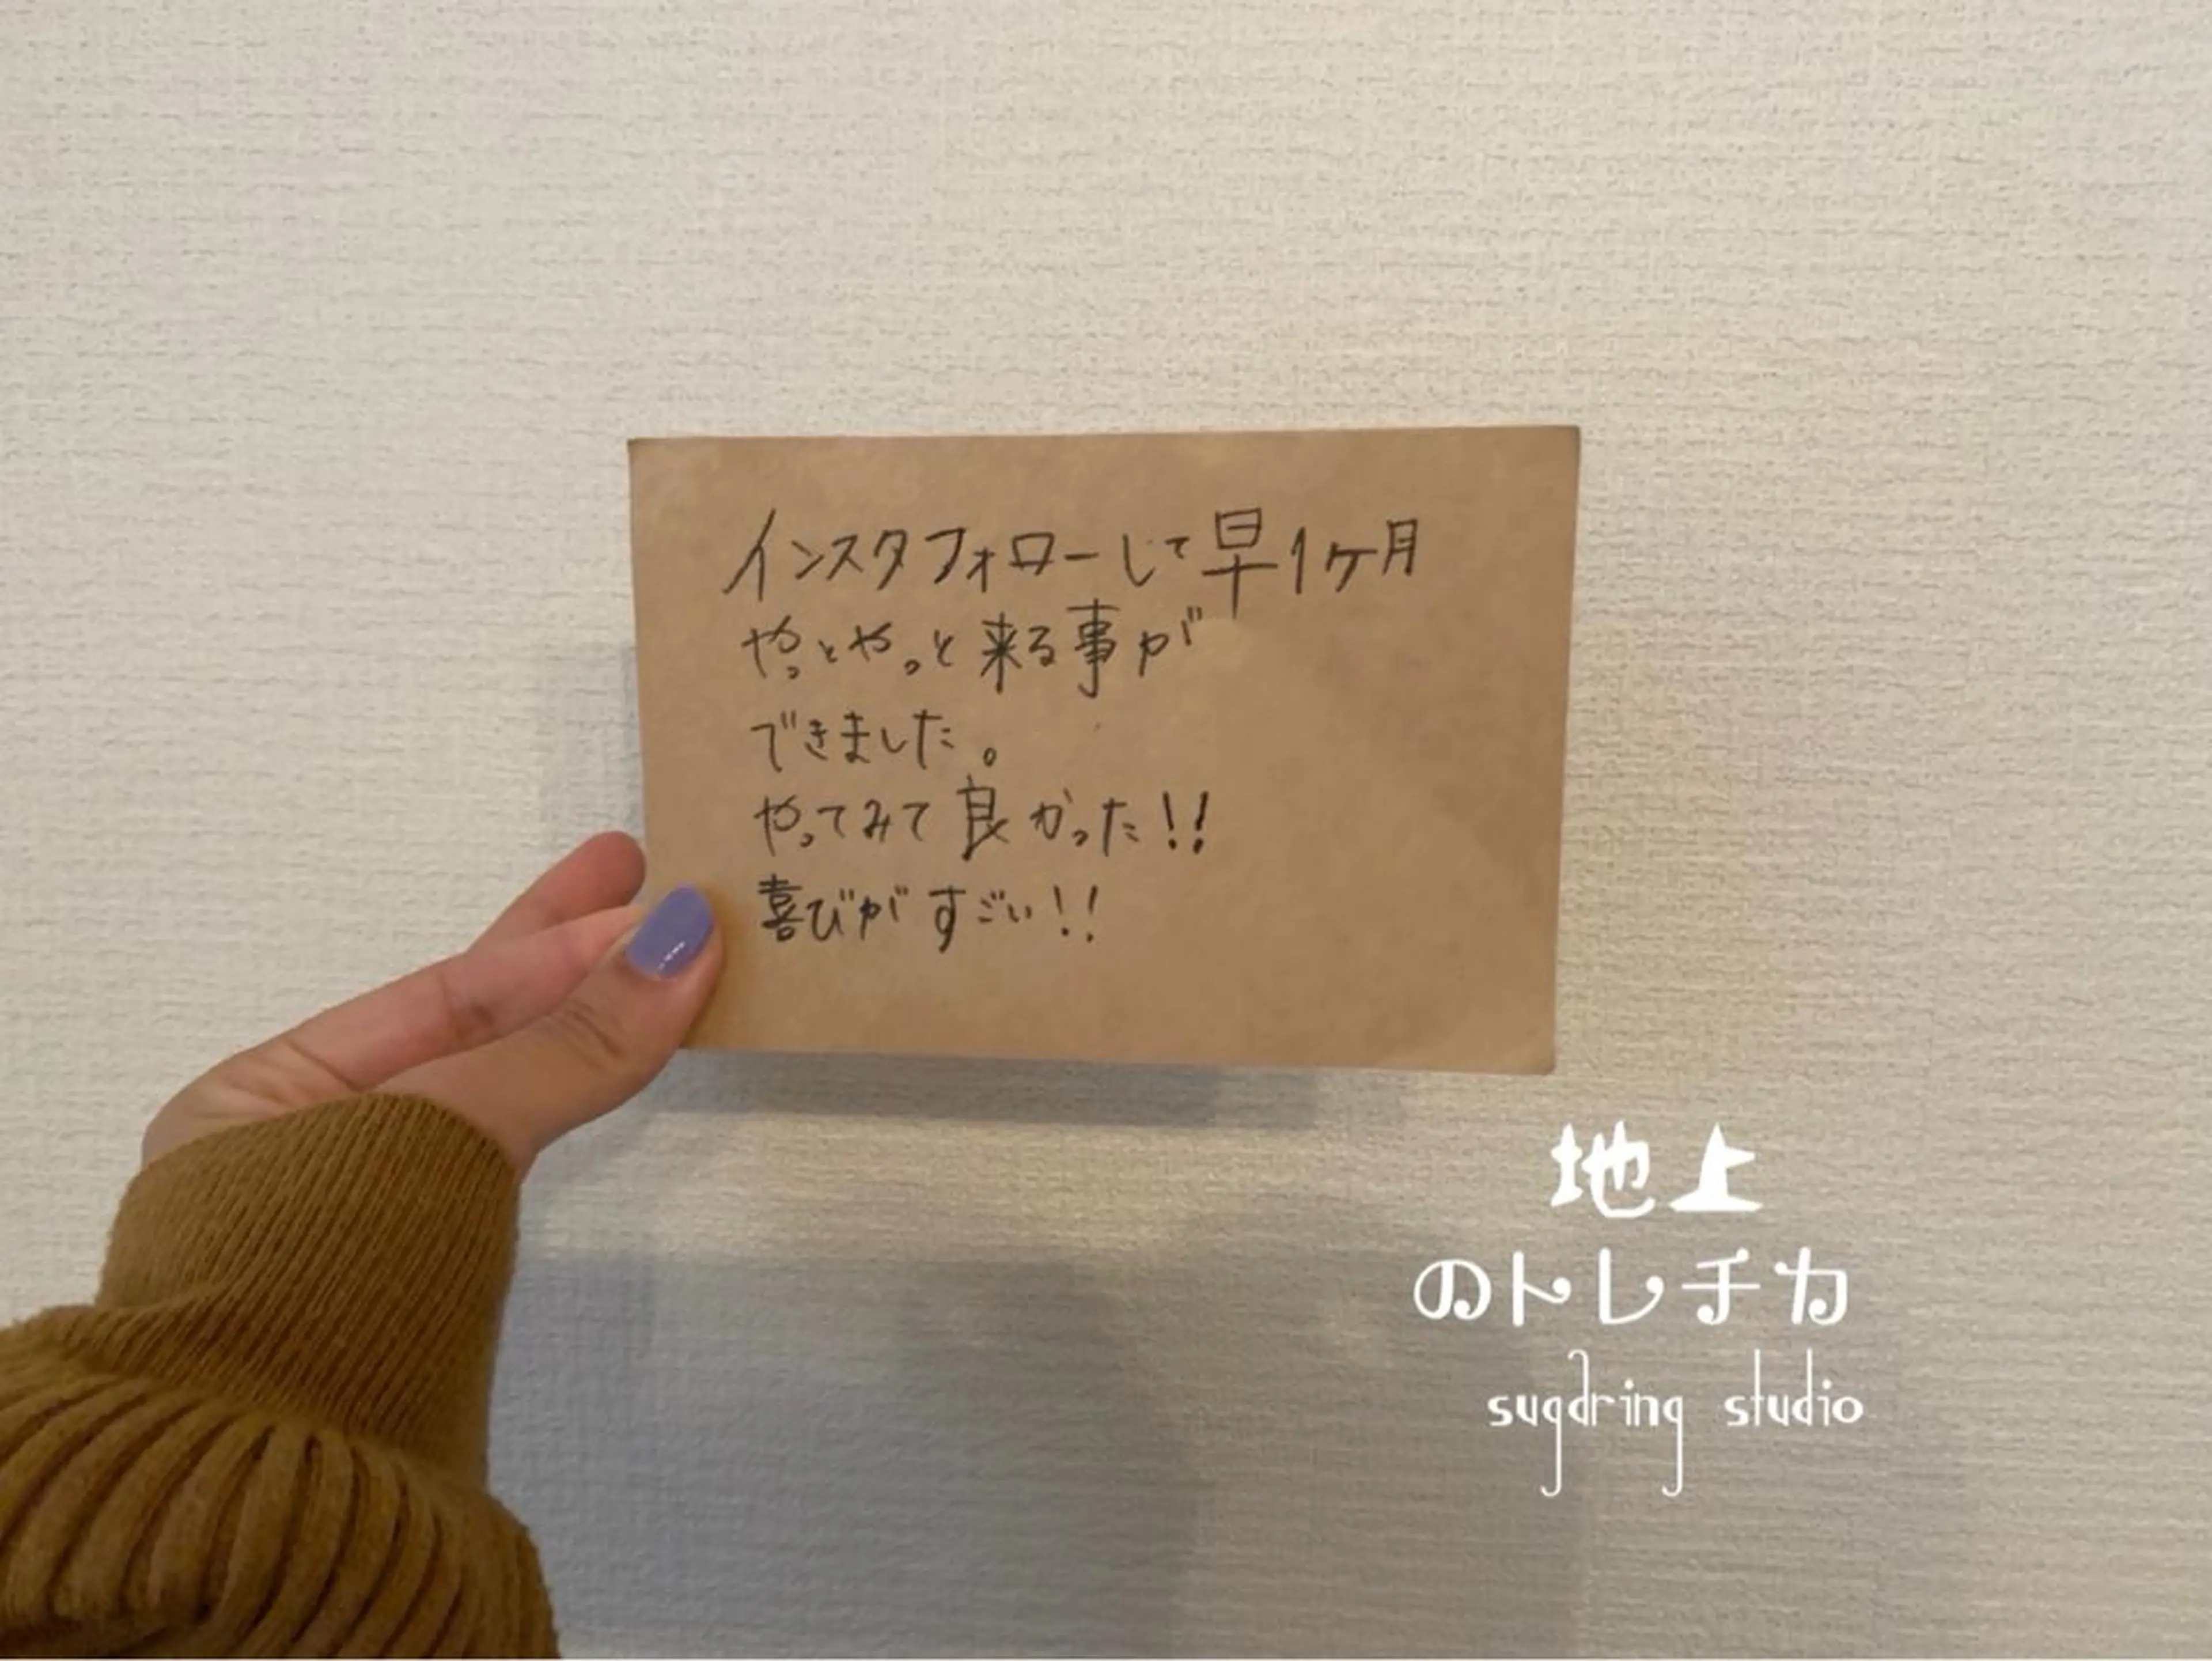 インスタフォローして早1ヶ月
やっとやっと来る事が
できました。
やってみて良かった!!
喜びがすごい!!
地上
のトレチカ
sugaring studio